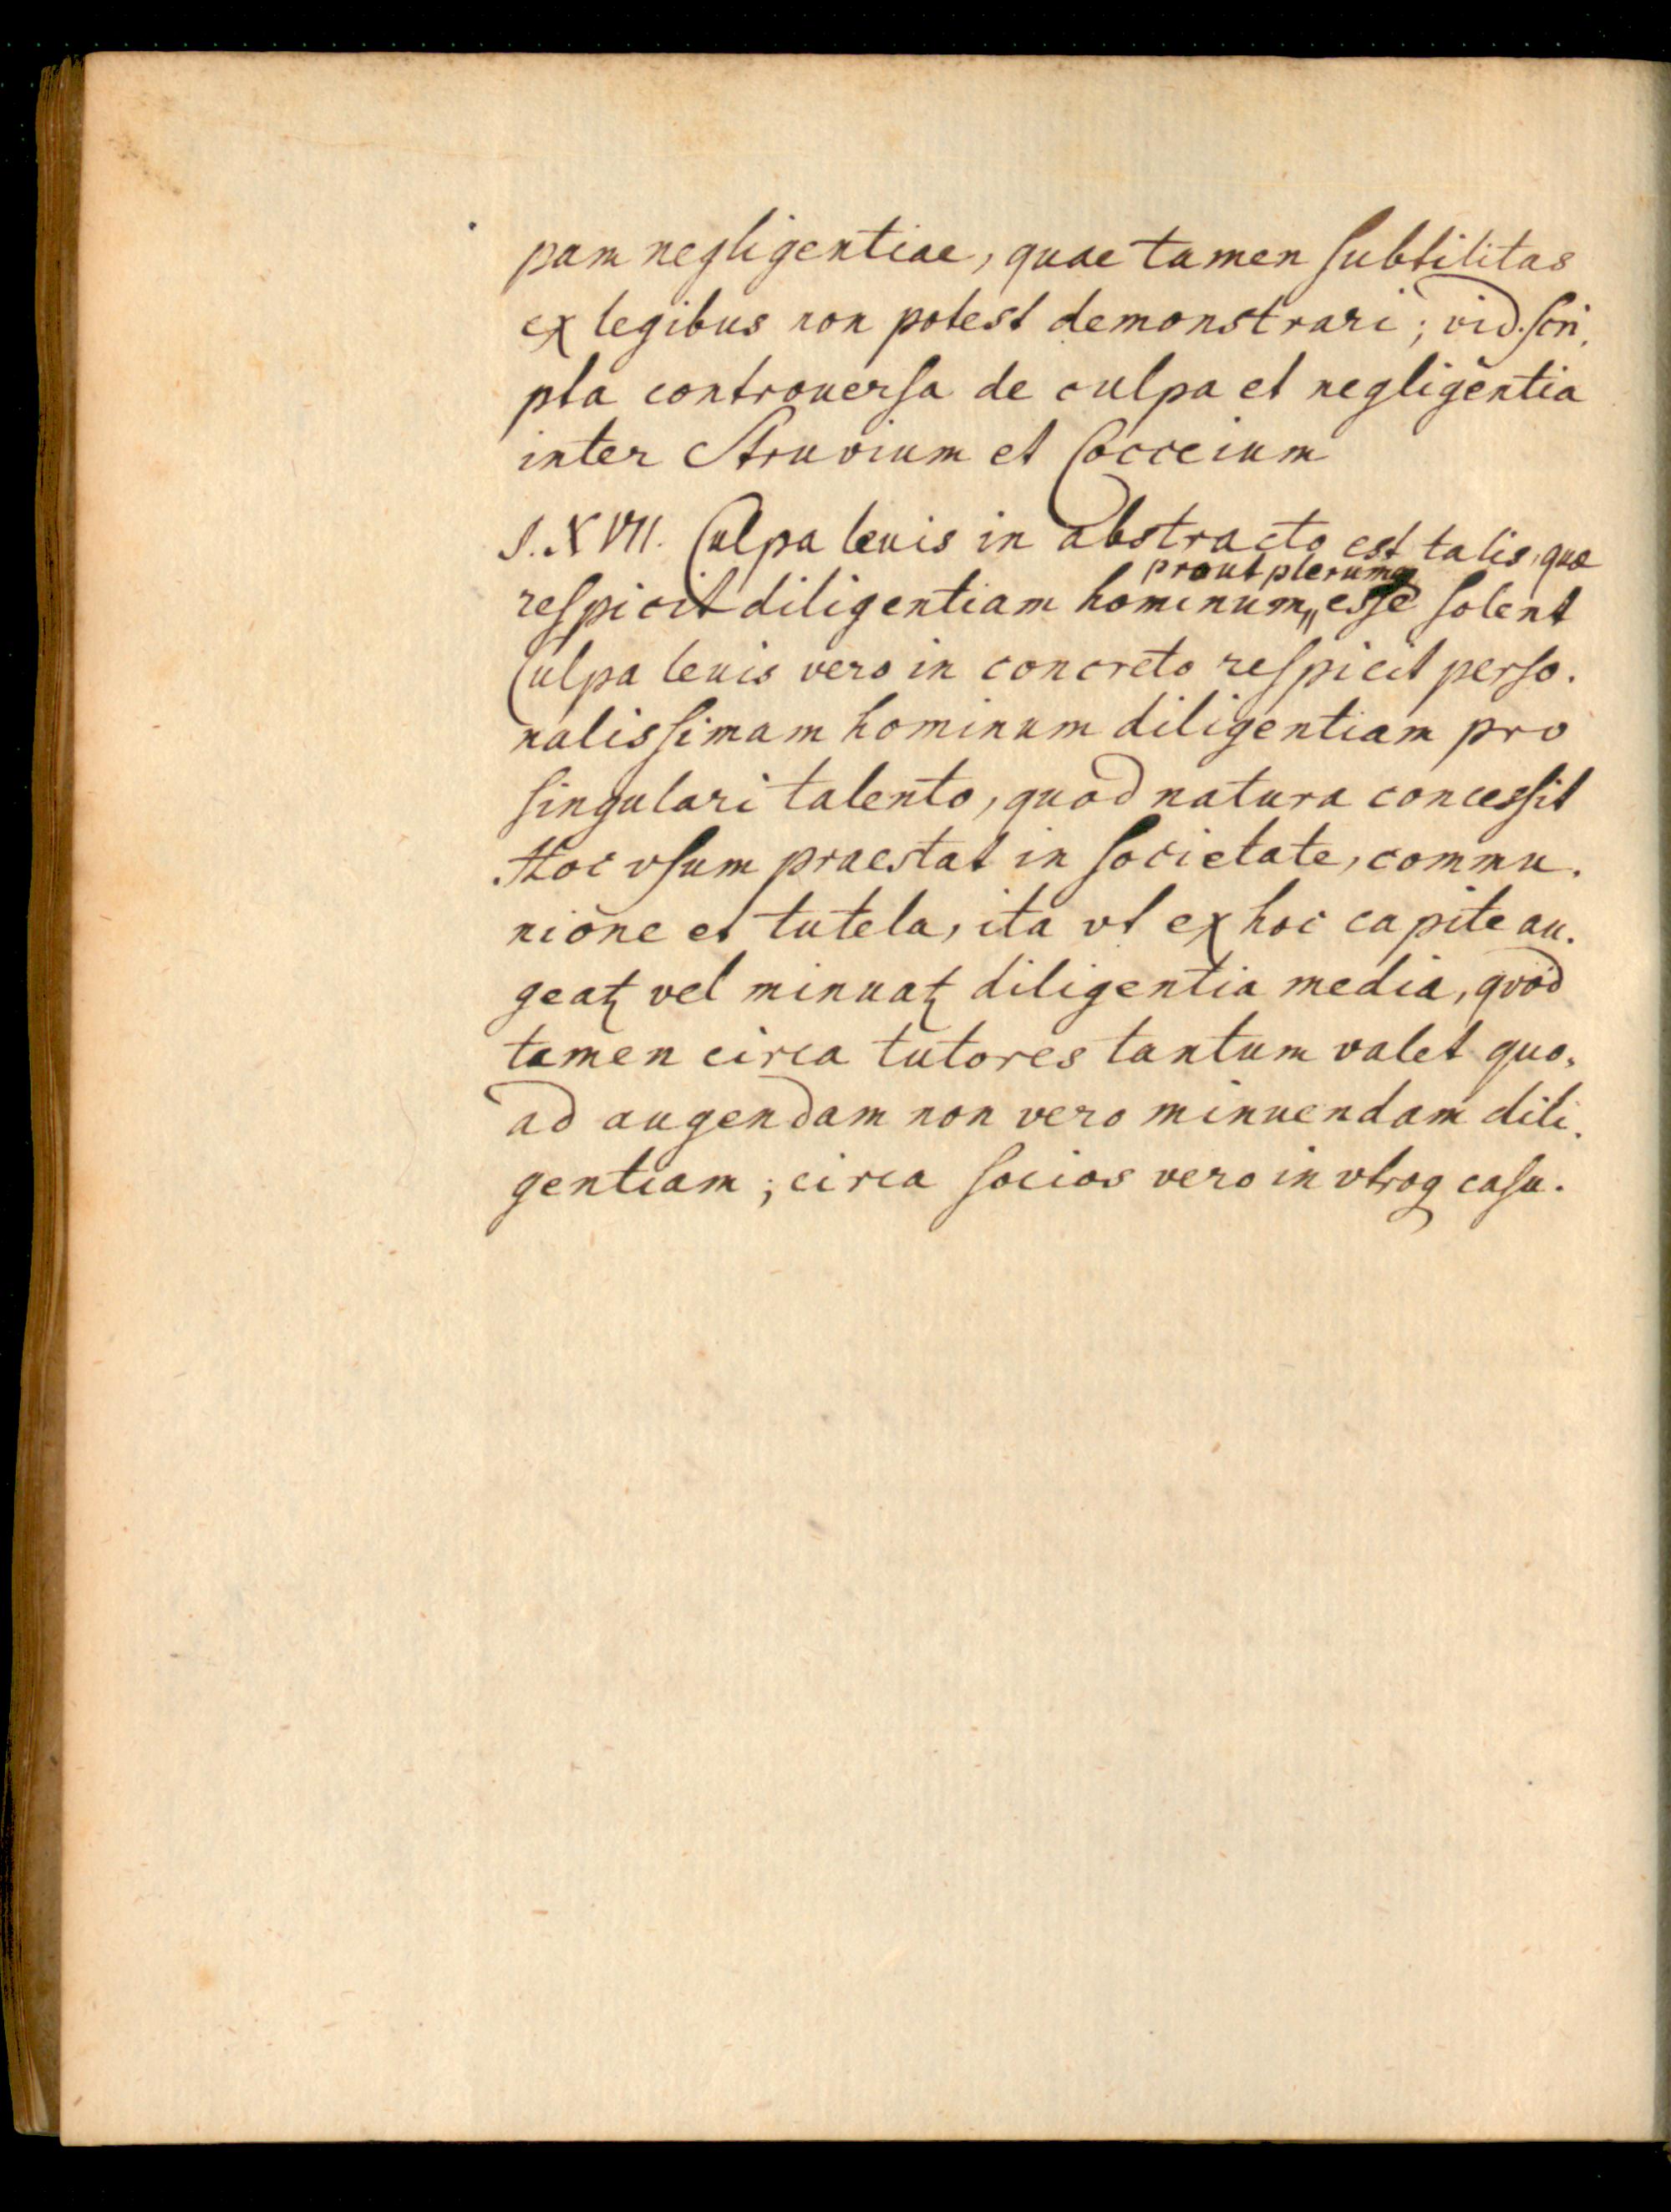 pam negligentiae, quae tamen ſubtilitas
ex legibus non potest demonstrari; vid. ſcri.
pta controuerſa de culpa et negligentia
inter Struvium et Cocceium
§. XVII. Culpa leuis in abstracto est talis, quæ
prout plerumq
reſpicit diligentiam hominum,, esſe ſolent
Culpa leuis vero in concreto reſpicit perſo.
nalisſimam hominum diligentiam pro
ſingulari talento, quod natura concesſit
Hoc vſum praestat in ſocietate, commu.
nione et tutela, ita vt ex hoc capite au.
geatꝛ vel minuatꝛ diligentia media, qvod
tamen circa tutores tantum valet quo.
ad augendam non vero minuendam dili.
gentiam; circa ſocios vero in vtroq caſu.